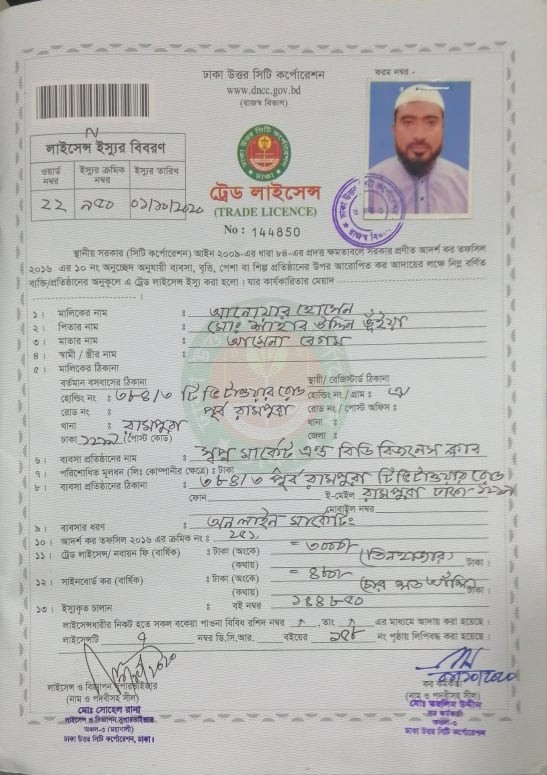 ঢাকা উত্তর সিটি কর্পোরেশন
www.dncc.gov.bd
(রাজস্ব বিভাগ)
ফরম নম্বর -
লাইসেন্স ইস্যুর বিবরণ
ওয়ার্ড নম্বর ইস্যুর ক্রমিক নম্বর ইস্যুর তারিখ
২২ ০১/১০/২০২০
ট্রেড লাইসেন্স
(TRADE LICENCE)
No : 144850
স্থানীয় সরকার (সিটি কর্পোরেশন) আইন ২০০৯-এর ধারা ৮৪-এর প্রদত্ত ক্ষমতাবলে সরকার প্রণীত আদর্শ কর তফসিল
২০১৬ এর ১০ নং অনুচ্ছেদ অনুযায়ী ব্যবসা, বৃত্তি, পেশা বা শিল্প প্রতিষ্ঠানের উপর আরোপিত কর আদায়ের লক্ষে নিম্ন বর্ণিত
ব্যক্তি/প্রতিষ্ঠানের অনুকূলে এ ট্রেড লাইসেন্স ইস্যু করা হলো। যার কার্যকারিতার মেয়াদ
১। মালিকের নাম : আনোয়ার হোসেন
২। পিতার নাম : মোঃ উদ্দিন ভূঁইয়া
৩। মাতার নাম : আমেনা বেগম
৪। স্বামী / স্ত্রীর নাম :
৫। মালিকের ঠিকানা
বর্তমান বসবাসের ঠিকানা স্থায়ী/ রেজিস্টার্ড ঠিকানা
হোল্ডিং নং : ৩৮৪/৩ টি ভি টাওয়ার রোড হোল্ডিং নং/গ্রাম : ঐ
রোড নং : পূর্ব রামপুরা রোড নং / পোস্ট অফিস :
থানা : রামপুরা থানা :
ঢাকা (পোস্ট কোড) জেলা :
৬। ব্যবসা প্রতিষ্ঠানের নাম : মার্কেট এন্ড বিডি বিজনেস ক্লাব
৭। পরিশোধিত মূলধন (লিঃ কোম্পানীর ক্ষেত্রে) : টাকা
৮। ব্যবসা প্রতিষ্ঠানের ঠিকানা : ৩৮৪/৩ পূর্ব রামপুরা টি ভি টাওয়ার রোড
ফোন ই-মেইল রামপুরা ঢাকা-১২১৯
মোবাইল নম্বর
৯। ব্যবসার ধরণ : অনলাইন মার্কেটিং
১০। আদর্শ কর তফসিল ২০১৬ এর ক্রমিক নং :
১১। ট্রেড লাইসেন্স/ নবায়ন ফি (বার্ষিক) : টাকা (অংকে) = ৩০০০/-
(কথায়) (তিন হাজার) টাকা।
১২। সাইনবোর্ড কর (বার্ষিক) : টাকা (অংকে) = ৪৮০/-
(কথায়) চার শত আশি টাকা।
১৩। ইস্যুকৃত চালান : বই নম্বর
লাইসেন্সধারীর নিকট হতে সকল বকেয়া পাওনা বিবিধ রশিদ নম্বর , তাং এর মাধ্যমে আদায় করা হয়েছে।
লাইসেন্সটি ৭ নম্বর ডি.সি.আর. বইয়ের নং পৃষ্ঠায় লিপিবদ্ধ করা হয়েছে।
লাইসেন্স ও বিজ্ঞাপন সুপারভাইজার
(নাম ও পদবীসহ সীল)
মোঃ সোহেল রানা
লাইসেন্স ও বিজ্ঞাপন সুপারভাইজার
অঞ্চল-৩ (মহাখালী)
ঢাকা উত্তর সিটি কর্পোরেশন, ঢাকা।
কর কর্মকর্তা
(নাম ও পদবীসহ সীল)
মোঃ উদ্দিন
কর কর্মকর্তা
অঞ্চল-৩
ঢাকা উত্তর সিটি কর্পোরেশন